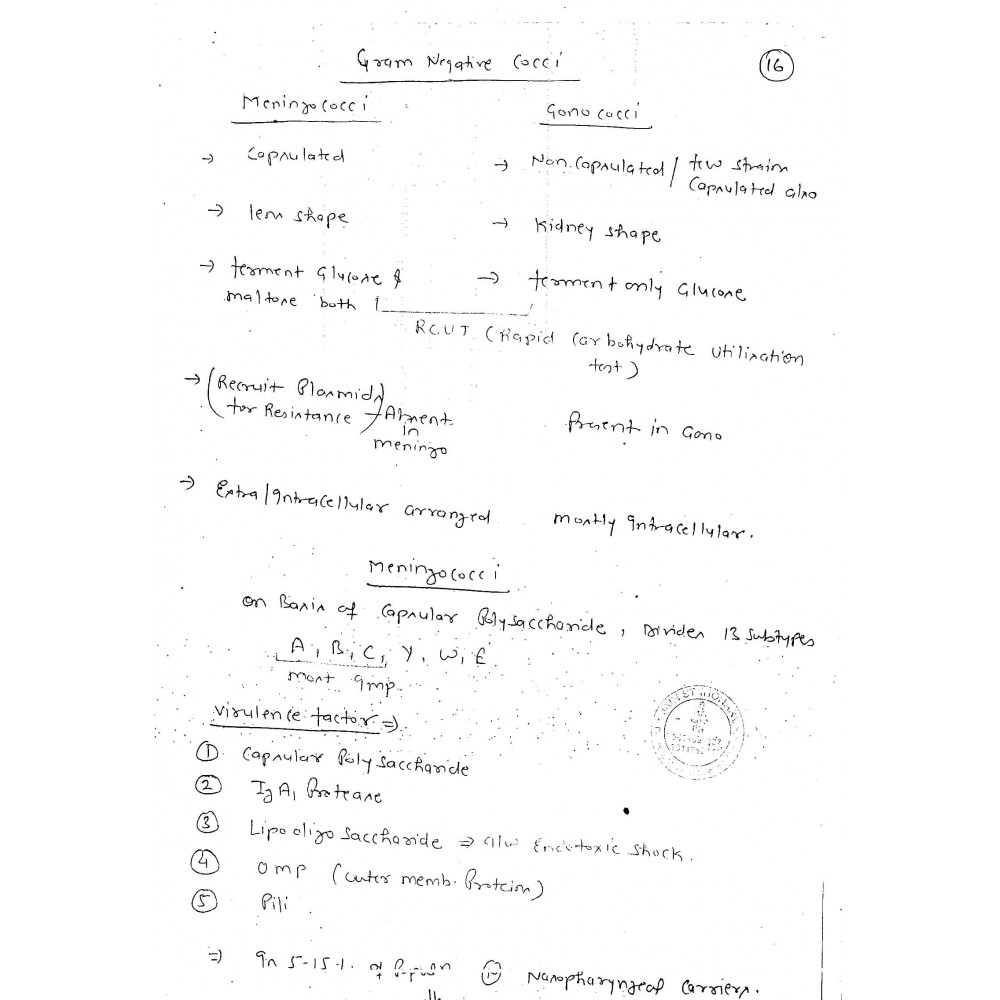 Gram Negative Cocci
16
Meningococci
Gonococci
→ Capsulated
→ Non.Capsulated / few strain
Capsulated also
→ lens shape
→ Kidney shape
→ ferment Glucose &
maltose both
→ ferment only Glucose
RCUT (Rapid Carbohydrate Utilisation
test)
→ (Recruit Plasmids
for Resistance) → Absent
in
meningo
Present in Gono
→ Extra/Intracellular arranged
mostly Intracellular.
Meningococci
on Basis of Capsular Polysaccharide, Divides 13 Subtypes
A, B, C, Y, W, E
most Imp.
Virulence factor ⇒
① Capsular Polysaccharide
② IgA1 Protease
③ Lipooligosaccharide ⇒ a/w Endotoxic shock.
④ OMP (outer memb. Protein)
⑤ Pili
⇒ In 5-15%. of Person
Nasopharyngeal Carriers.